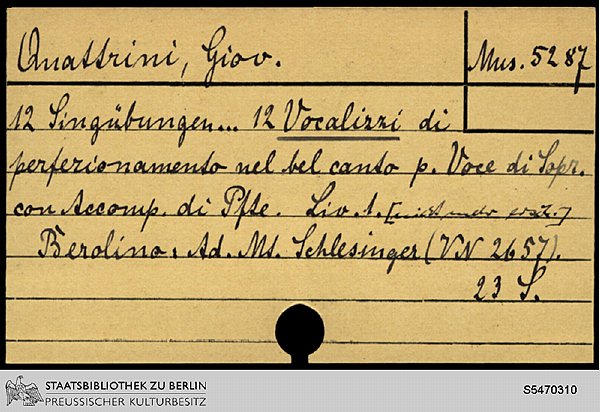 Quattrini, Giov.
Mus. 5287
12 Singübungen... 12 Vocalizzi di
perfezionamento nel bel canto p. Voce di Sopr.
con Accomp. di Pfte. Liv. 1. [nicht mehr ersch.]
Berolino: Ad. Mt. Schlesinger (VN 2657).
23 S.
STAATSBIBLIOTHEK ZU BERLIN
PREUSSISCHER KULTURBESITZ
S5470310